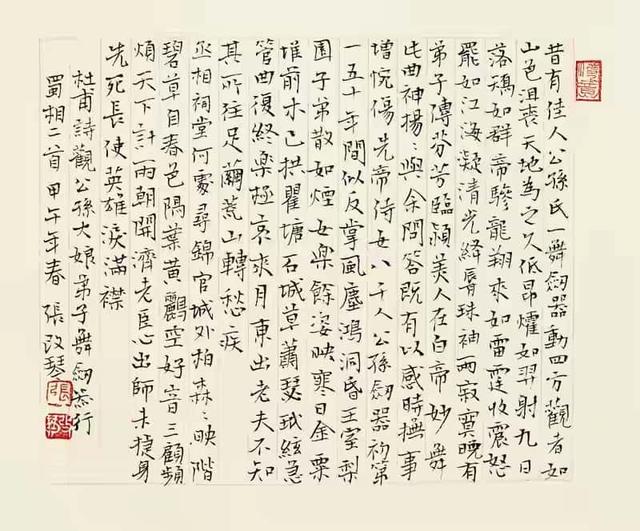 昔有佳人公孫氏一舞劍器動四方觀者如
山色沮喪天地為之久低昂㸌如羿射九日
落矯如群帝驂龍翔來如雷霆收震怒
罷如江海凝清光絳唇珠袖兩寂寞晚有
弟子傳芬芳臨潁美人在白帝妙舞
此曲神揚々與余問答既有以感時撫事
增惋傷先帝侍女八千人公孫劍器初第
一五十年間似反掌風塵鴻洞昏王室梨
園子弟散如煙女樂餘姿映寒日金粟
堆前木已拱瞿塘石城草蕭瑟玳絃急
管曲復終樂極哀來月東出老夫不知
其所往足繭荒山轉愁疾
丞相祠堂何處尋錦官城外柏森々映階
碧草自春色隔葉黃鸝空好音三顧頻
煩天下計兩朝開濟老臣心出師未捷身
先死長使英雄淚滿襟
杜甫詩觀公孫大娘弟子舞劍器行
蜀相二首 甲午年春 張改琴
張